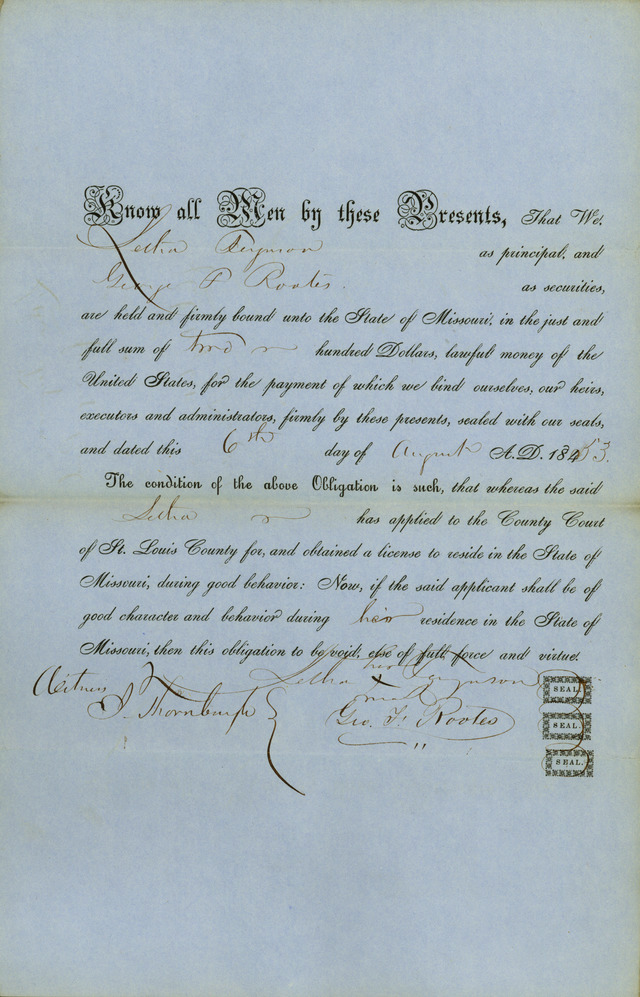 Know all Men by these Presents, That We,
Letha Ferguson as principal, and
George F Rootes as securities,
are held and firmly bound unto the State of Missouri, in the just and
full sum of two hundred Dollars, lawful money of the
United States, for the payment of which we bind ourselves, our heirs,
executors and administrators, firmly by these presents, sealed with our seals,
and dated this 6th day of August A.D. 1853.
The condition of the above Obligation is such, that whereas the said
Letha has applied to the County Court
of St. Louis County for, and obtained a license to reside in the State of
Missouri, during good behavior: Now, if the said applicant shall be of
good character and behavior during her residence in the State of
Missouri, then this obligation to be void, else of full force and virtue.
her
Letha x Ferguson SEAL.
Witness
J. Thornburgh
Geo. F. Rootes SEAL.
SEAL.